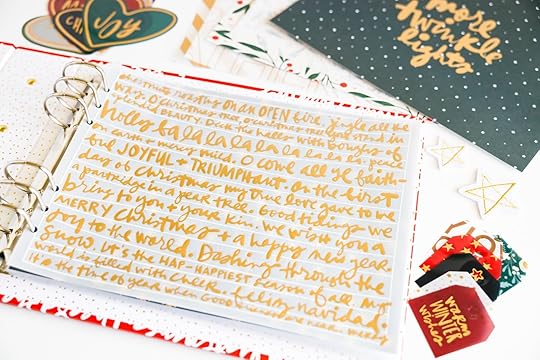 JOY
more
twinkle
lights
chestnuts roasting on an OPEN fire. Jingle all the
way. O Christmas tree, O Christmas tree that stand in
splendid BEAUTY. Deck the halls with boughs of
holly fa la la la la la la la la. peace
on earth + mercy mild. O come all ye faith-
ful JOYFUL + TRIUMPHANT. on the first
day of Christmas my true love gave to me
a partridge in a pear tree. Good tidings we
bring to you + your kin. We wish you a
MERRY Christmas + a happy new year.
Joy to the world. Dashing through the
snow. It's the HAP-HAPPIEST season of all. my
world is filled with cheer. feliz navidad.
It's the time of year when
warm
WINTER
wishes